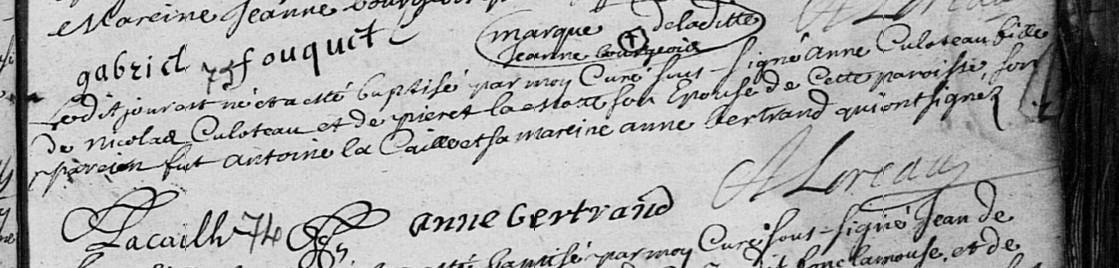 Mareine Jeanne bourgeois
A Loreau
gabriel fouquet
marque de ladite
Jeanne bourgeois
Ledit jour est né et a esté baptisé par moy Curé sous-signé Anne Culoteau fille
de Nicolas Culoteau et de pieret la motte son Epouse de Cette paroisse, son
parein fut antoine la Caille et sa mareine anne bertrand qui ont signez
A Loreau
Lacaille 74 anne bertrand
esté baptisé par moy Curé sous-signé Jean de
et de